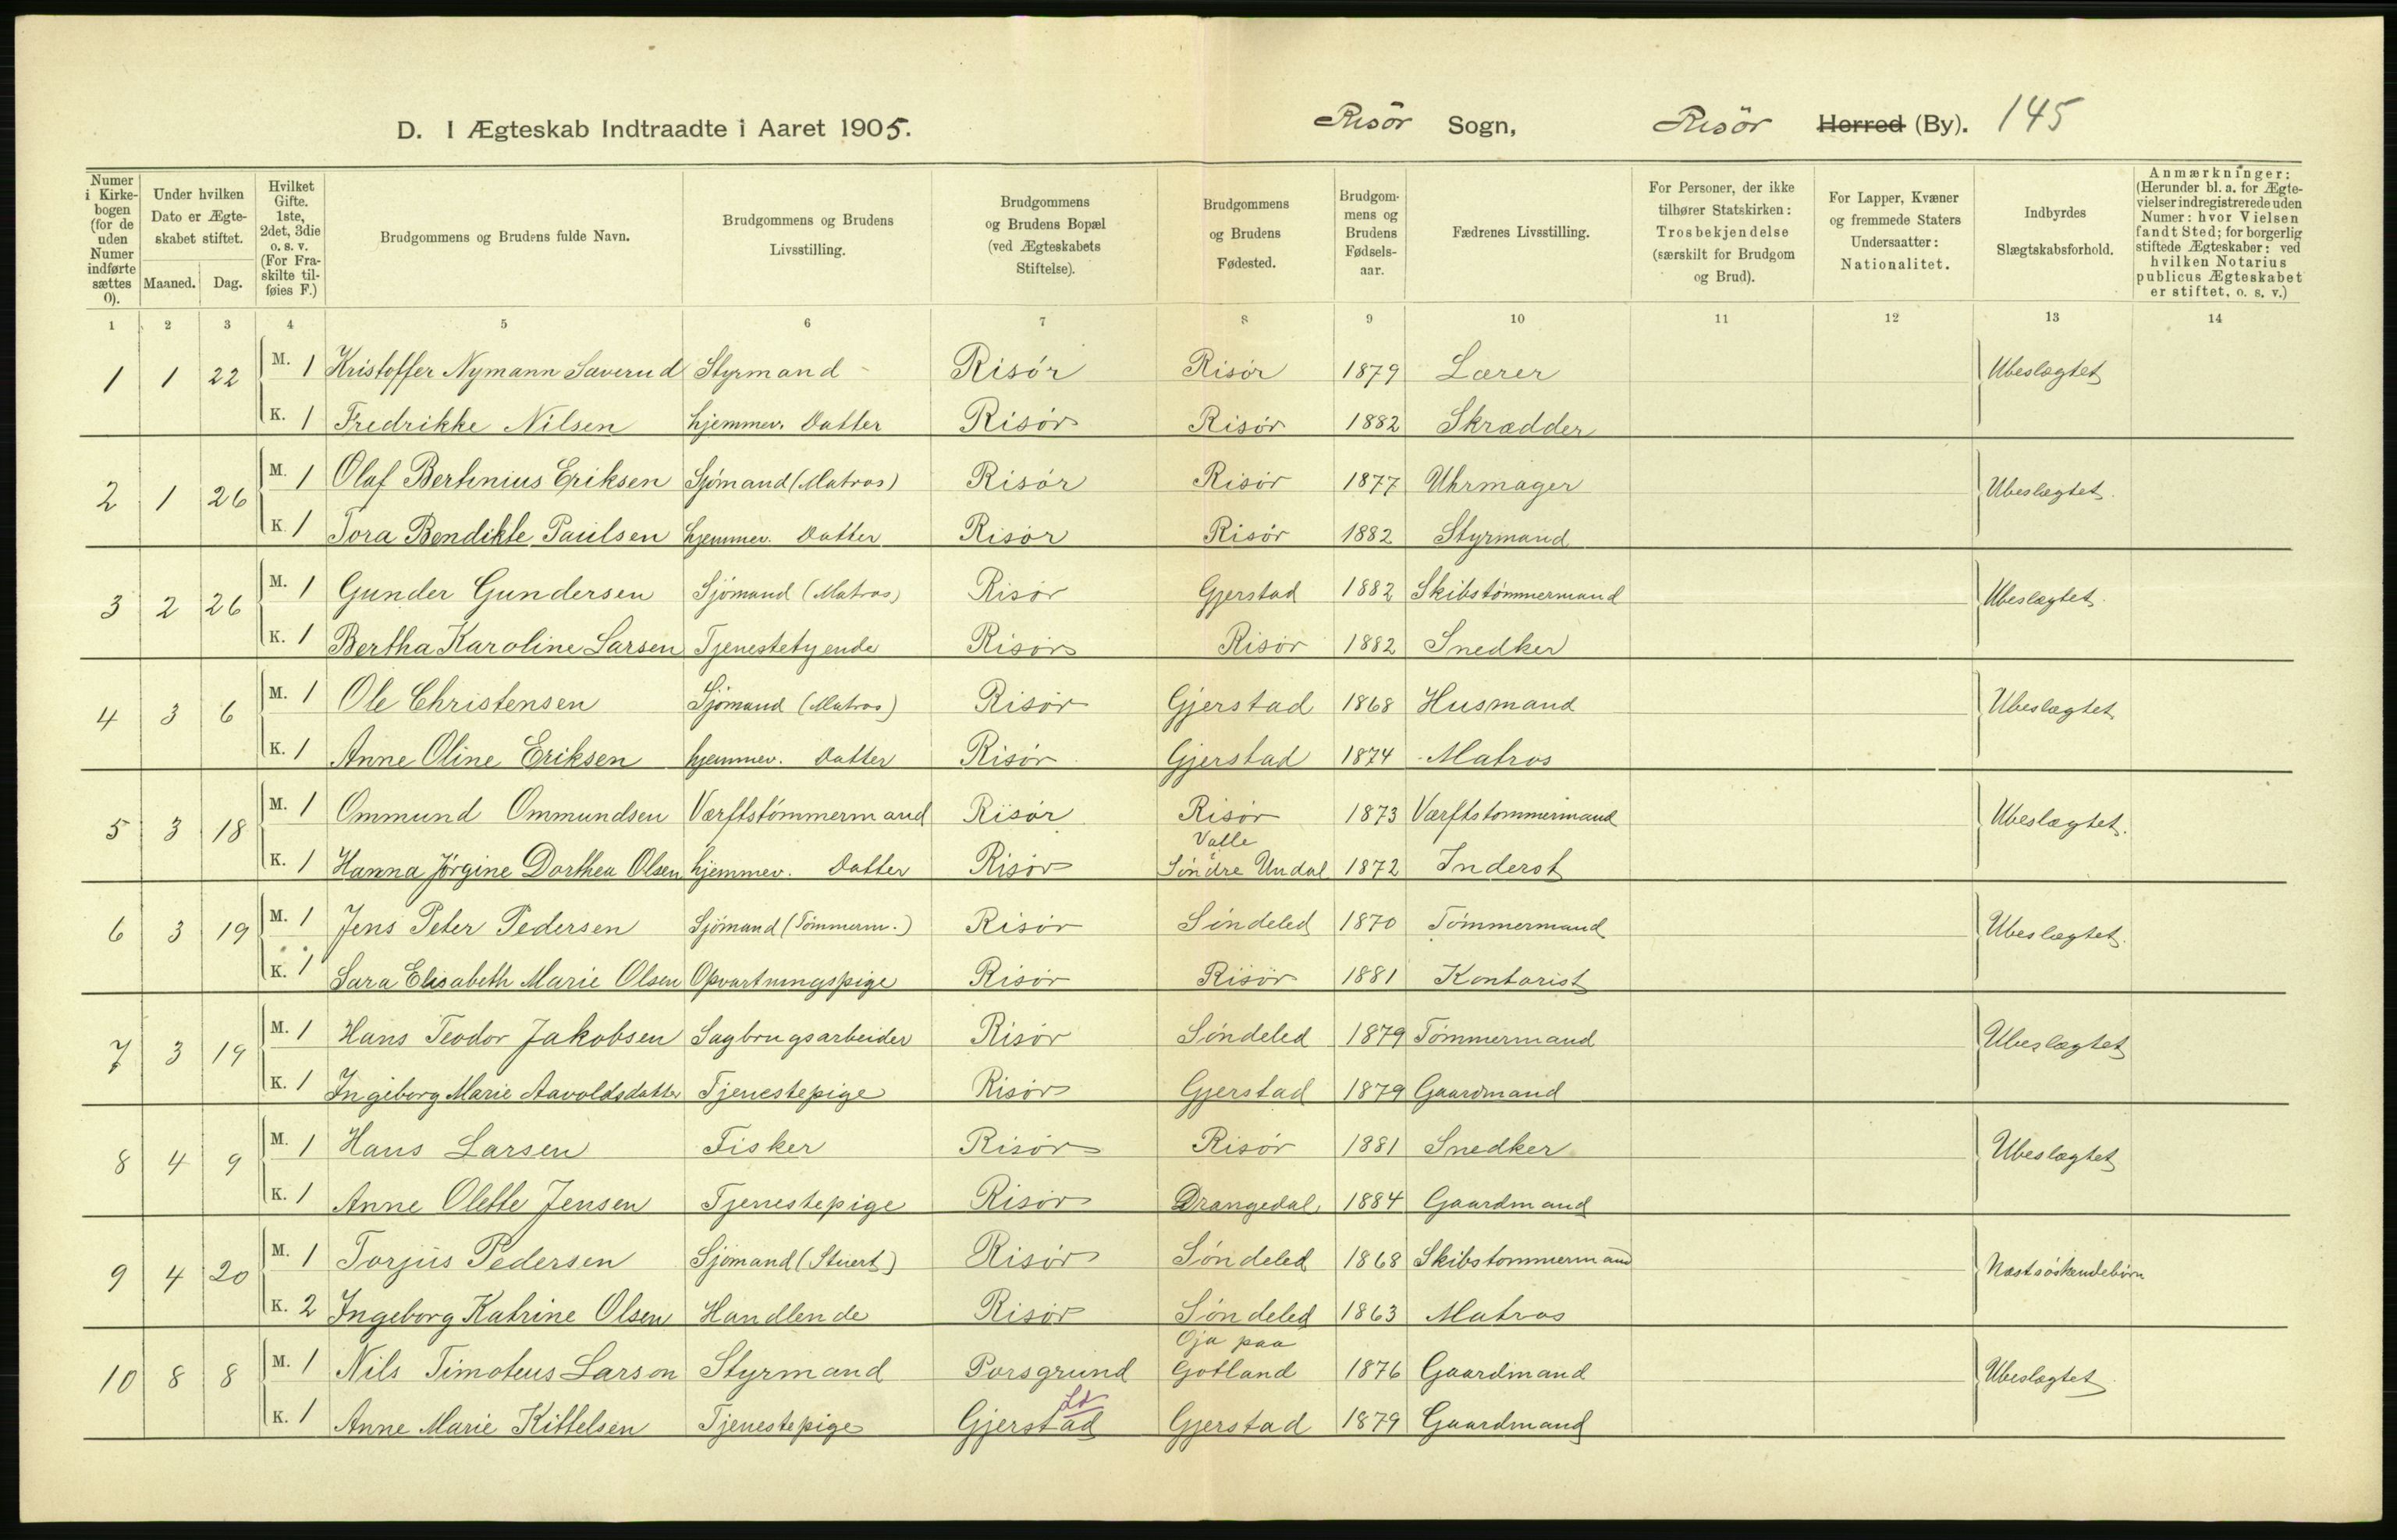 D. I Ægteskab Indtraadte i Aaret 1905. Risör Sogn, Risör Herred (By). 145
Numer i Kirkebogen (for de uden Numer indførte sættes 0).
Under hvilken Dato er Ægteskabet stiftet.
Maaned. Dag.
Hvilket Gifte. 1ste, 2det, 3die o. s. v. (For Fraskilte tilføies F.)
Brudgommens og Brudens fulde Navn.
Brudgommens og Brudens Livsstilling.
Brudgommens og Brudens Bopæl (ved Ægteskabets Stiftelse).
Brudgommens og Brudens Fødested.
Brudgommens og Brudens Fødselsaar.
Fædrenes Livsstilling.
For Personer, der ikke tilhører Statskirken: Trosbekjendelse (særskilt for Brudgom og Brud).
For Lapper, Kvæner og fremmede Staters Undersaatter: Nationalitet.
Indbyrdes Slægtskabsforhold.
Anmærkninger: (Herunder bl. a. for Ægtevielser indregistrerede uden Numer: hvor Vielsen fandt Sted; for borgerlig stiftede Ægteskaber: ved hvilken Notarius publicus Ægteskabet er stiftet, o. s. v.)
1 2 3 4 5 6 7 8 9 10 11 12 13 14
1 1 22 M. 1 Kristoffer Nymann Saverud Styrmand Risör Risör 1879 Lærer Ubeslægtet
K. 1 Fredrikke Nilsen hjemmev. Datter Risör Risör 1882 Skrædder
2 1 26 M. 1 Olaf Bertinius Eriksen Sjömand (Matros) Risör Risör 1877 Uhrmager Ubeslægtet.
K. 1 Tora Bendikte Paulsen hjemmev. Datter Risör Risör 1882 Styrmand
3 2 26 M. 1 Gunder Gundersen Sjömand (Matros) Risör Gjerstad 1882 Skibstömmermand Ubeslægtet.
K. 1 Bertha Karoline Larsen Tjenestetyende Risör Risör 1882 Snedker
4 3 6 M. 1 Ole Christensen Sjömand (Matros) Risör Gjerstad 1868 Husmand Ubeslægtet
K. 1 Anne Oline Eriksen hjemmev. Datter Risör Gjerstad 1874 Matros
5 3 18 M. 1 Ommund Ommundsen Værftstömmermand Risör Risör 1873 Værftstommermand Ubeslægtet.
Valle
K. 1 Hanna Jörgine Dorthea Olsen hjemmev. Datter Risör Söndre Undal 1872 Inderst
6 3 19 M. 1 Jens Peter Pedersen Sjömand (Tömmerm.) Risör Söndeled 1870 Tömmermand Ubeslægtet.
K. 1 Sara Elisabeth Marie Olsen Opvartningspige Risör Risör 1881 Kontorist
7 3 19 M. 1 Hans Teodor Jakobsen Sagbrugsarbeider Risör Söndeled 1879 Tömmermand Ubeslægtet
K. 1 Ingeborg Marie Aavoldsdatter Tjenestepige Risör Gjerstad 1879 Gaardmand
8 4 9 M. 1 Hans Larsen Fisker Risör Risör 1881 Snedker Ubeslægtet
K. 1 Anne Olette Jensen Tjenestepige Risör Drangedal 1884 Gaardmand
9 4 20 M. 1 Torjus Pedersen Sjömand (Stuert) Risör Söndeled 1868 Skibstommermand Næstsöskendebörn
K. 2 Ingeborg Katrine Olsen Handlende Risör Söndeled 1863 Matros
Oja paa
10 8 8 M. 1 Nils Timoteus Larson Styrmand Porsgrund Gotland 1876 Gaardmand Ubeslægtet
K. 1 Anne Marie Kittelsen Tjenestepige Gjerstad Gjerstad 1879 Gaardmand